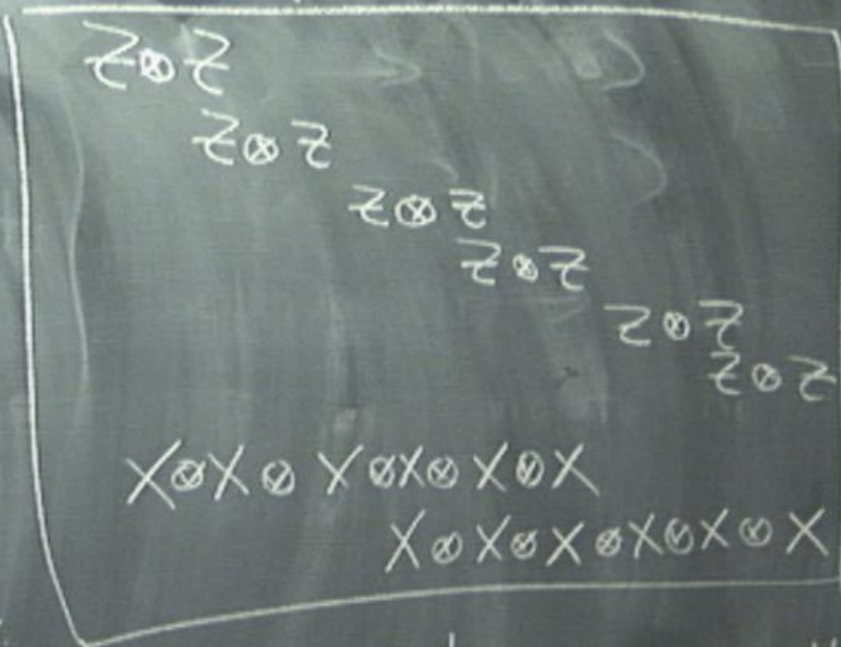 Z⊗Z
Z⊗Z
Z⊗Z
Z⊗Z
Z⊗Z
Z⊗Z
X⊗X⊗X⊗X⊗X⊗X
X⊗X⊗X⊗X⊗X⊗X